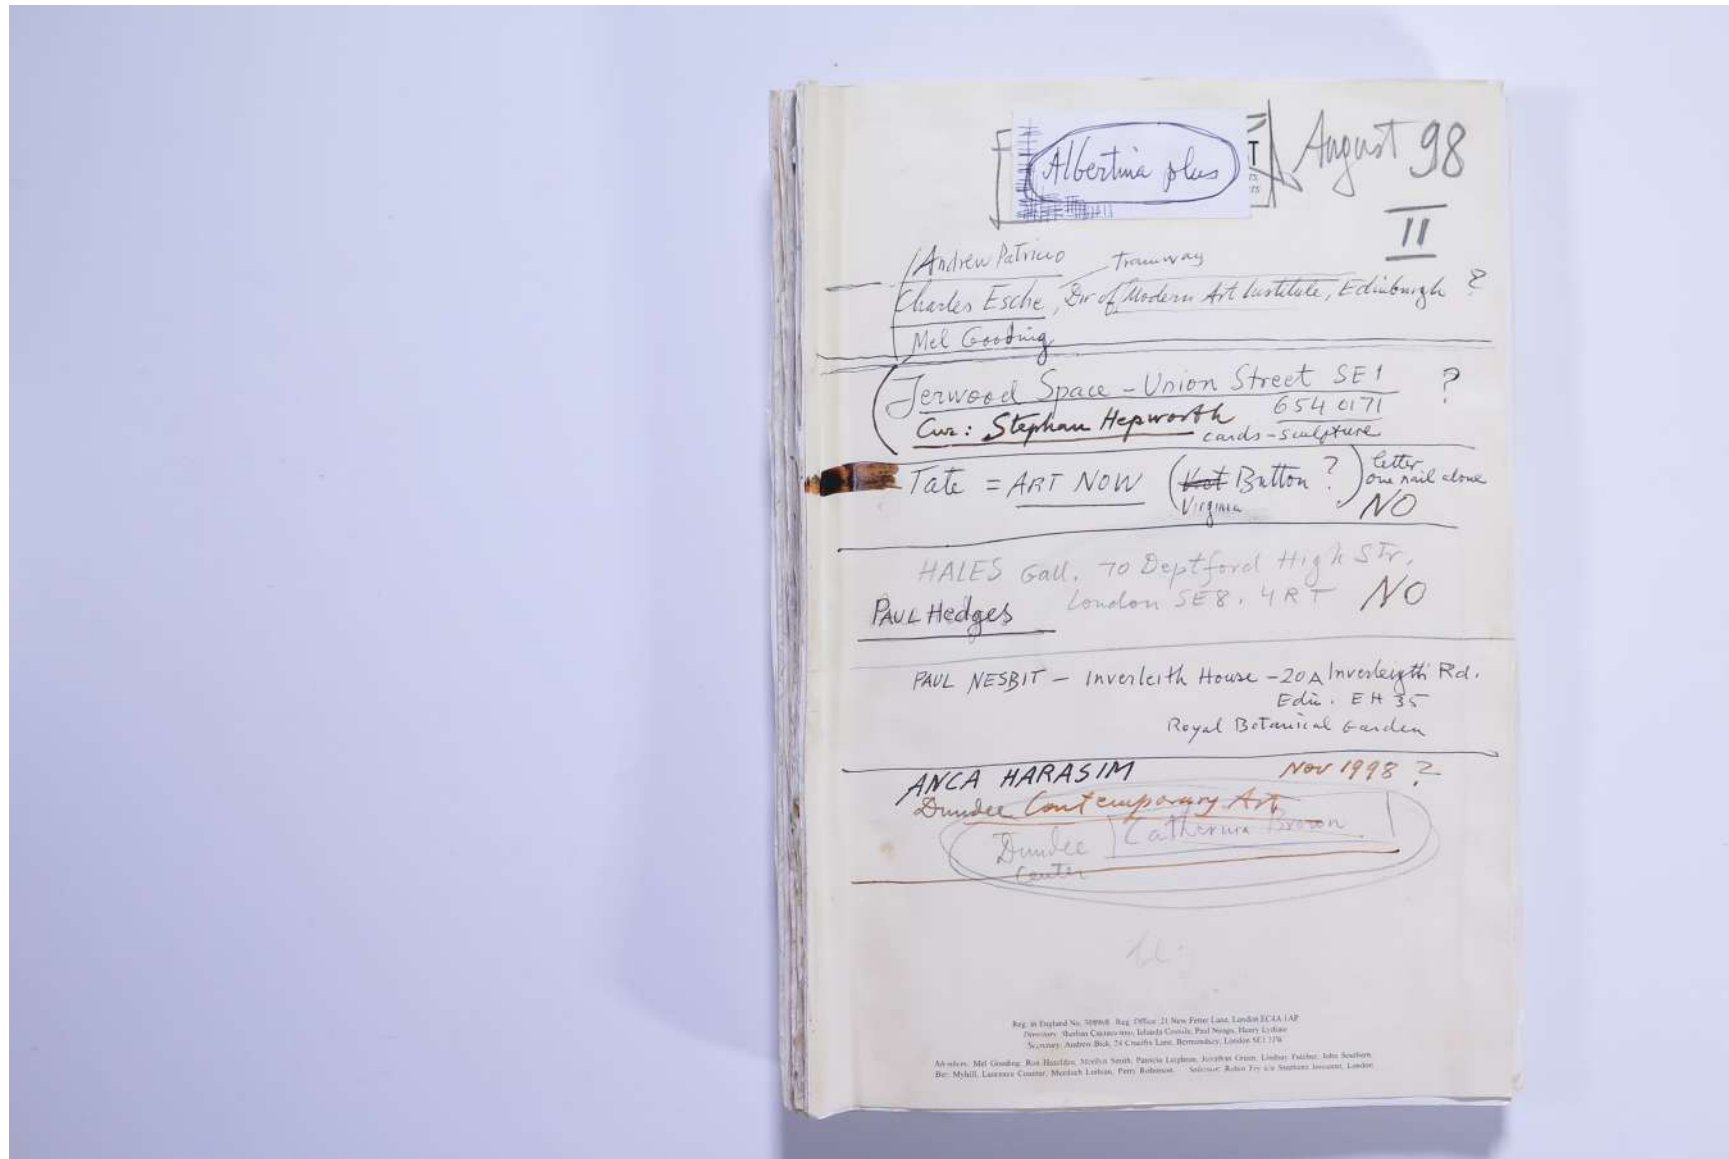 Albertina plus
T
August 98
II
Andrew Patricio
Tramway
Charles Esche, Dir of Modern Art Institute, Edinburgh ?
Mel Gooding
Jerwood Space - Union Street SE1 ?
654 0171
Cur: Stephan Hepworth
cards - sculpture
Tate = ART NOW (Button ?) letter
one nail alone
Virginia
NO
HALES Gall. 70 Deptford High Str.
London SE8. 4RT NO
PAUL Hedges
PAUL NESBIT - Inverleith House - 20A Inverleigth Rd.
Edin. EH 35
Royal Botanical Garden
ANCA HARASIM Nov 1998 ?
Dundee Contemporary Art
Dundee Catherina Brown
Center
Reg. in England No. Reg. Office: 21 New Fetter Lane, London EC4A 1AP
Directory: Paul Neagu, Henry Lydiate
Secretary: Andrew Bick, 24 Crucifix Lane, Bermondsey, London SE1
Advisors: Mel Gooding, Ron Haselden, Marilyn Smith, Patricia Leighton, Jonathan Green, Lindsay John Southern,
Perry Robinson. Solicitor: Robin Fry c/o Stephens Innocent, London.